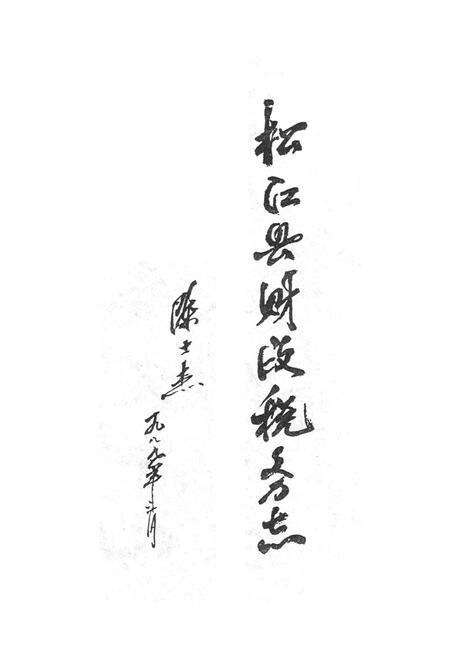 松江县财政税务志
陈士杰
一九八九年三月